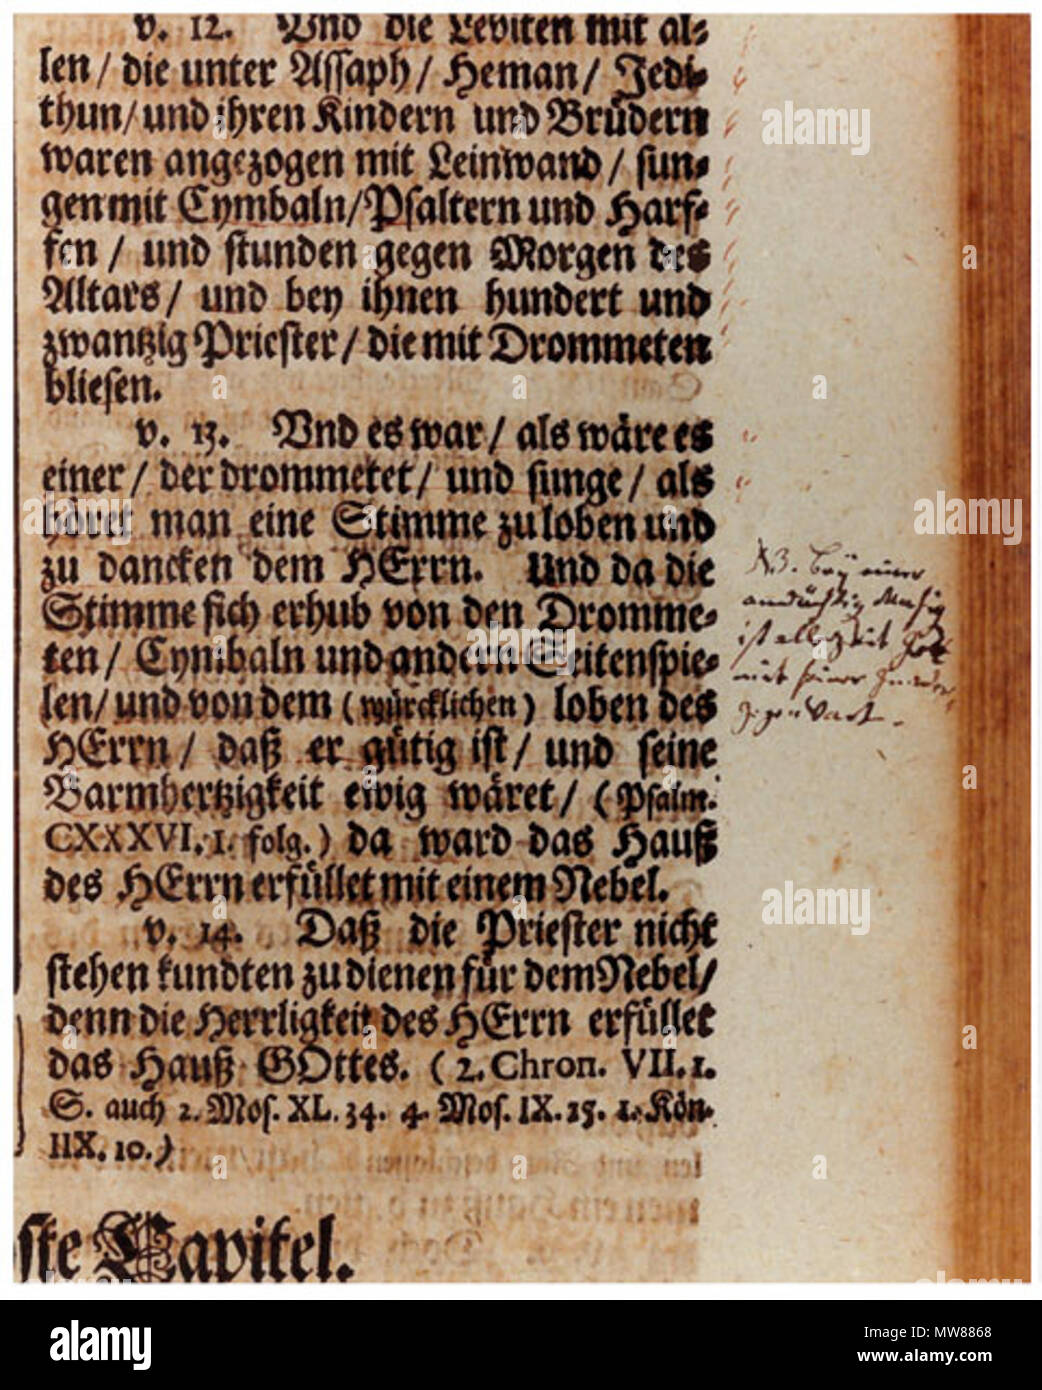 v. 12. Vnd die Leviten mit al⸗
len/ die unter Assaph/ Heman/ Jedi⸗
thun/ und ihren Kindern und Brüdern
waren angezogen mit Leinwand/ sun⸗
gen mit Cymbaln/ Psaltern und Harf⸗
fen/ und stunden gegen Morgen des
Altars/ und bey ihnen hundert und
zwantzig Priester/ die mit Drommeten
bliesen.
v. 13. Vnd es war/ als wäre es
einer/ der drommetet/ und sunge/ als
höret man eine Stimme zu loben und
zu dancken dem HErrn. Und da die
Stimme sich erhub von den Dromme⸗
ten/ Cymbaln und andern Seitenspie⸗
len/ und von dem (würcklichen) loben des
HErrn/ daß er gütig ist/ und seine
Barmhertzigkeit ewig wäret/ (Psalm.
CXXXVI. 1. folg.) da ward das Hauß
des HErrn erfüllet mit einem Nebel.
v. 14. Daß die Priester nicht
stehen kundten zu dienen für dem Nebel/
denn die Herrligkeit des HErrn erfüllet
das Hauß GOttes. (2. Chron. VII. 1.
S. auch 2. Mos. XL. 34. 4. Mos. IX. 15. 1. Kön.
IIX. 10.)
ste Capitel.
NB. Beÿ einer
andächtig Musiq
ist allezeit Gott
mit seiner Gnaden
Gegenwart.
alamy
alamy stock photo
MW8868
www.alamy.com